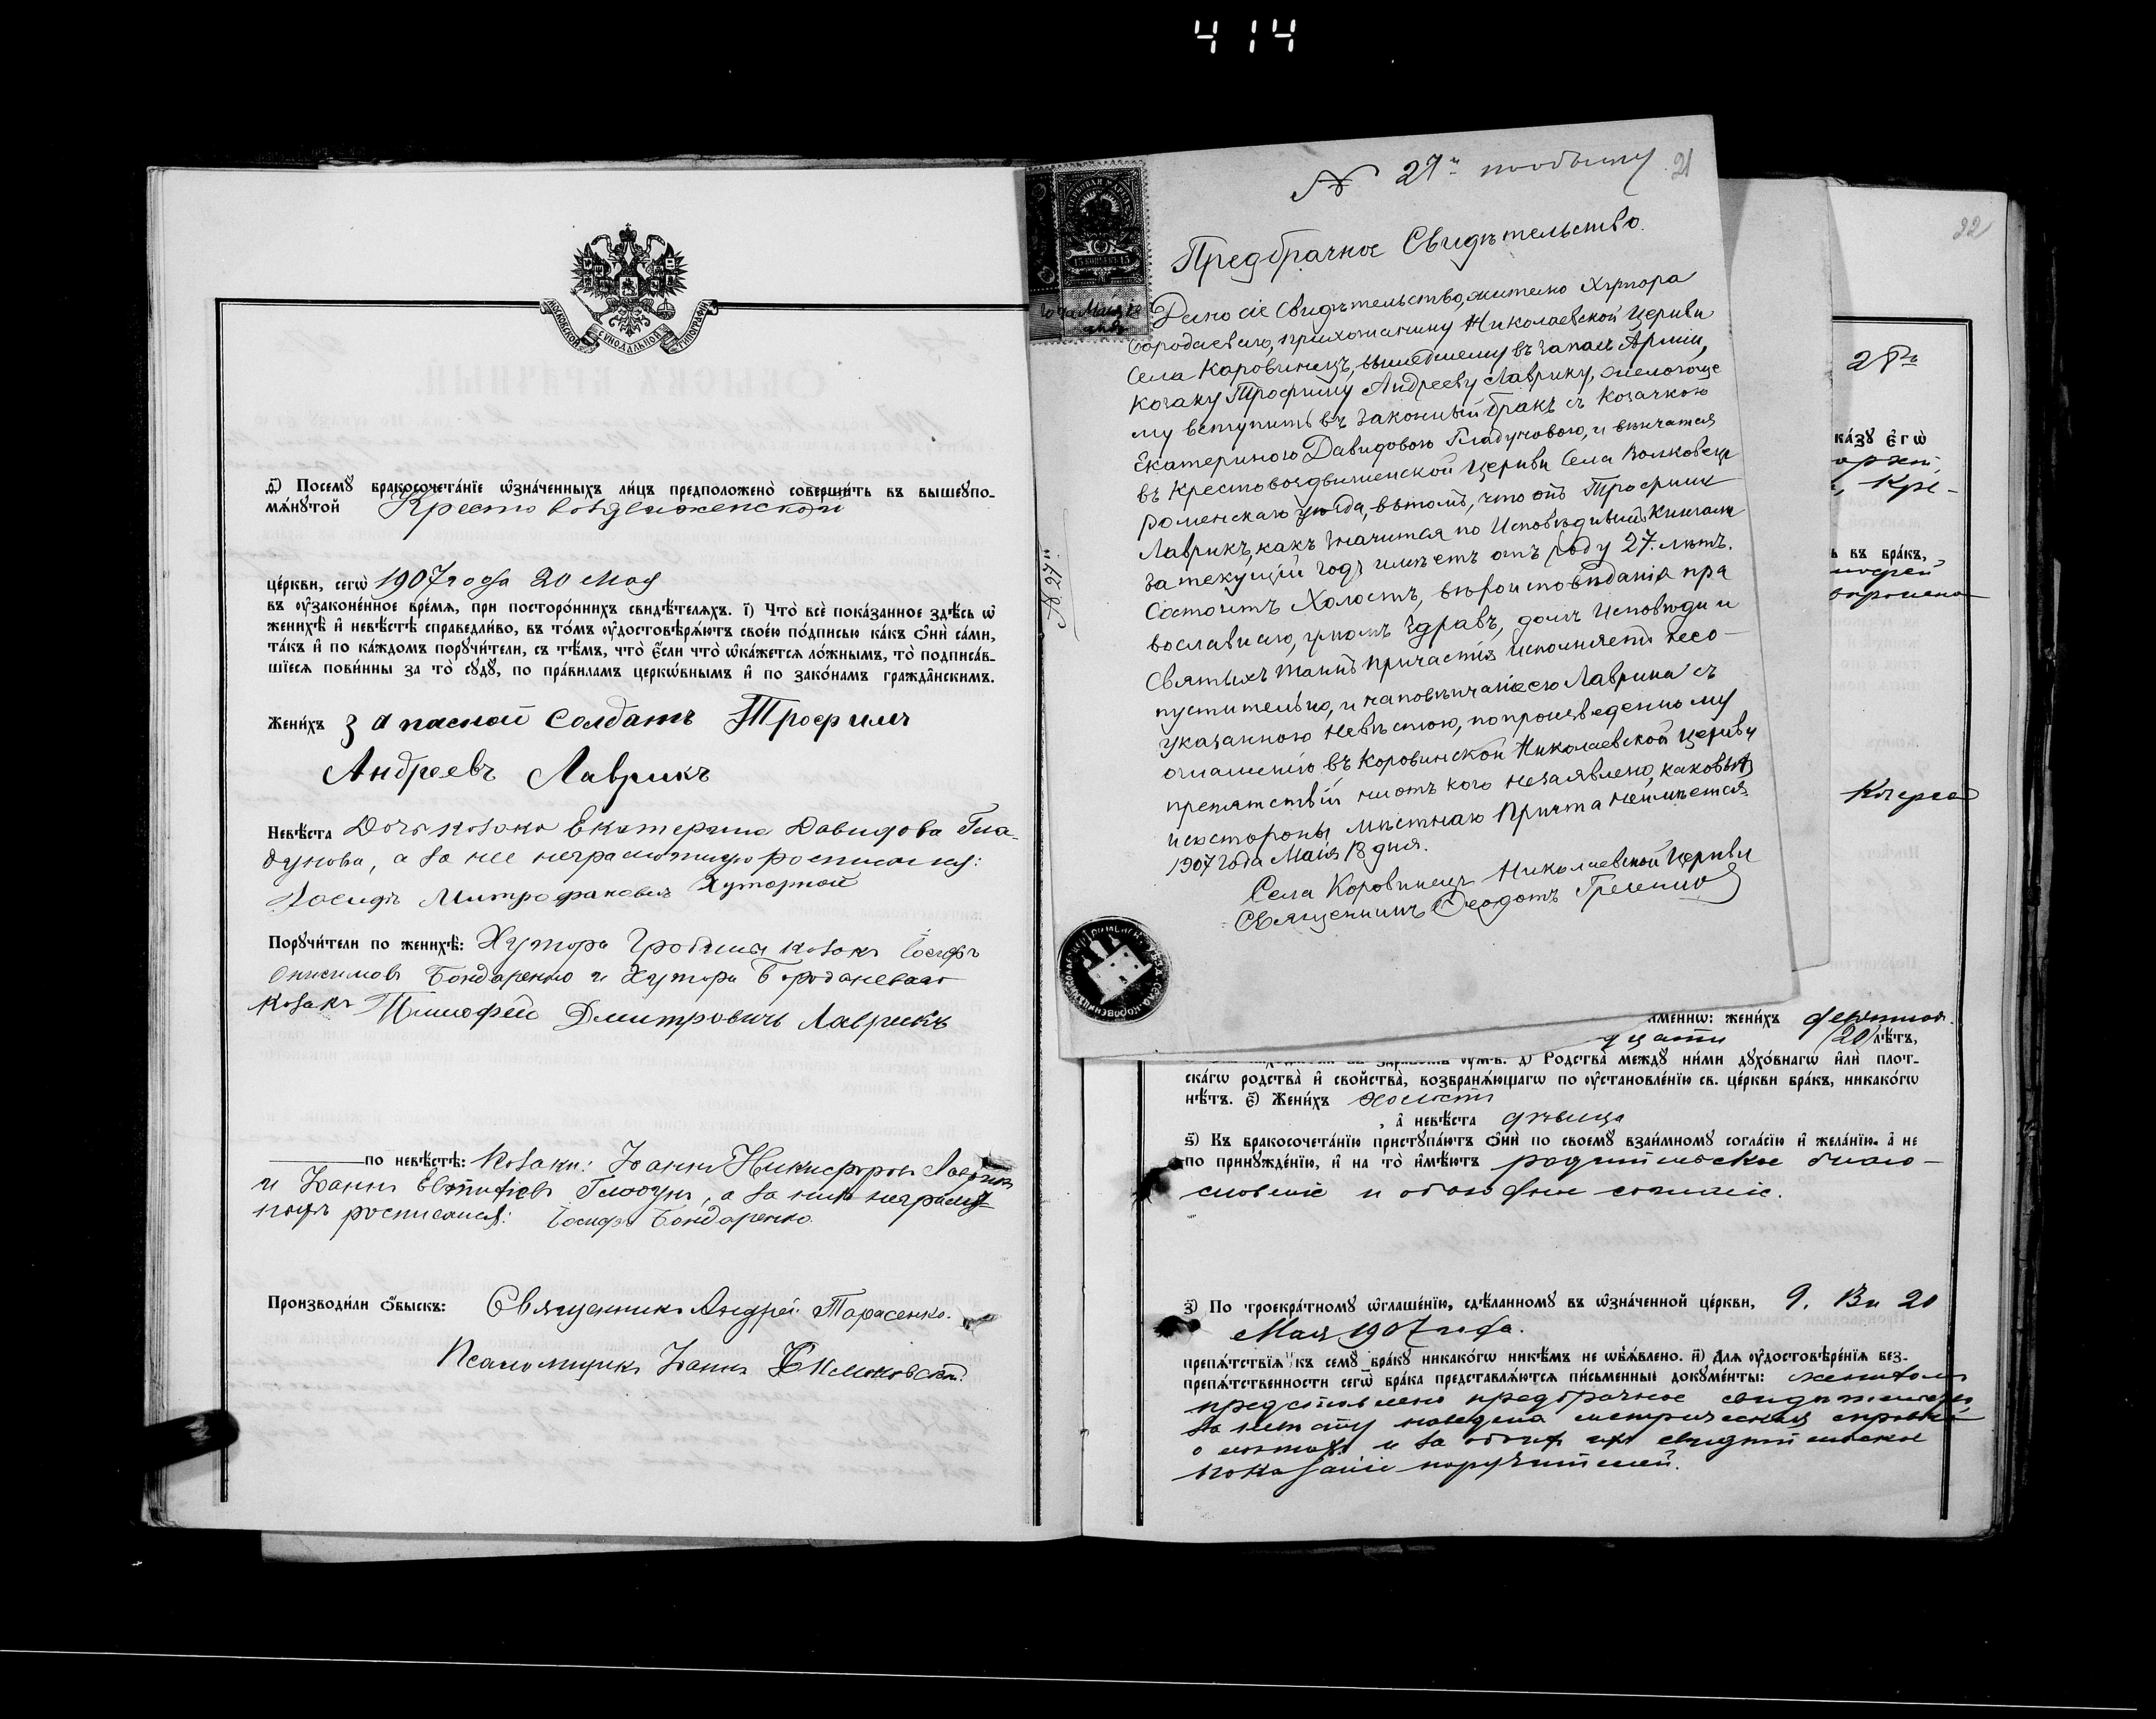 414
МОСКОВСКОЙ СУНОДАЛЬНОЙ ТИПОГРАФІИ
Посемꙋ бракосочета́нїе ѡзна́ченныхъ ли́цъ предположено̀ соверши́ть въ вышеꙋпо-
мѧ́нꙋтой Крестовоздвиженской
це́ркви, сегѡ̀ 1907 года 20 Мая
въ ᲂу҆зако́ненное вре́мѧ, при посторо́ннихъ свидѣ́телѧхъ. і҃) Что̀ всѐ пока́занное здѣ́сь ѡ҆
женихѣ̀ и҆ невѣ́стѣ справедли́во, въ то́мъ ᲂу҆достовѣрѧ́ютъ свое́ю по́дписью ка́къ ѻ҆нѝ са́ми,
та́къ и҆ по ка́ждомъ порꙋчи́тели, съ тѣ́мъ, что̀ є҆́сли что̀ ѡ҆ка́жетсѧ ло́жнымъ, то̀ подписа́в-
шїесѧ пови́нны за то̀ сꙋдꙋ̀, по пра́виламъ церко́внымъ и҆ по зако́намъ гражда́нскимъ.
Жени́хъ запасной солдатъ Трофимъ
Андреевъ Лаврикъ
Невѣ́ста Дочь козака Екатерина Давидова Гла-
дунова, а за нее неграмотную росписался:
Іосифъ Митрофановъ Хуторной
Порꙋчи́тели по женихѣ̀: Хутора козакъ Іосифъ
Онисимовъ Бондаренко и Хутора Бородаевого
козакъ Тимофей Дмитровичъ Лаврикъ
по невѣ́стѣ: Козаки: Іоаннъ Никифоровъ Лаврикъ
и Іоаннъ Евтифіевъ Гладунъ, а за нихъ неграмот-
ныхъ росписался: Іосифъ Бондаренко
Производи́ли ѻ҆́быскъ: Священникъ Андрей Тарасенко.
Псаломщикъ Іоаннъ
№ 27й по обыску
21
15 КОПѢЕКЪ 15
Предбрачное Свидѣтельство.
Дано сіе Свидѣтельство, жителю Хутора
Бородаеваго, прихожанину Николаевской Церкви
Села Коровинецъ, вышедшему въ запасъ Арміи,
козаку Трофиму Андрееву Лаврику, желающе
му вступить въ законный бракъ съ козачкою
Екатериною Давидовою Гладуновою, и вѣнчатся
въ Крестовоздвиженской Церкви Села Волковецъ
Роменскаго уѣзда, въ томъ, что онъ Трофимъ
Лаврикъ, какъ значится по Исповѣднымъ Книгамъ
за текущій годъ имѣетъ отъ роду 27. лѣтъ.
Состоитъ Холостъ, вѣроисповѣданія пра
вославнаго, умомъ здравъ, долгъ Исповѣди и
Святыхъ таинъ причастія исполняетъ несо-
пустительно, и на повѣнчаніе его Лаврика съ
указанною невѣстою, по произведенному
оглашенію въ Коровинской Николаевской Церкви
препятствій ни отъ кого незаявлено, каковыхъ
и со стороны мѣстнаго Причта неимѣется.
1907 года Маія 18 дня.
Села Коровинецъ Николаевской Церкви
Священникъ Ѳеодотъ
№ 27й
22
28й
ка́зꙋ є҆гѡ̀
въ бра́къ,
жени́хъ
(20) лѣ́тъ,
д҃) Родства̀ междꙋ̀ ни́ми дꙋхо́внагѡ и҆лѝ плот-
ска́гѡ родства̀ и҆ сво́йства, возбранѧ́ющагѡ по ᲂу҆становле́нїю св. це́ркви бра́къ, никако́гѡ
нѣ́тъ. є҃) Жени́хъ холостъ
, а҆ невѣ́ста дѣвица
ѕ҃) Къ бракосочета́нїю пристꙋпа́ютъ ѻ҆нѝ по своемꙋ̀ взаи́мномꙋ согла́сїю и҆ жела́нїю, а҆ не
по принꙋжде́нїю, и҆ на то̀ и҆мѣ́ютъ родительское благо-
словеніе и обоюдное согласіе.
з҃) По троекра́тномꙋ ѡ҆глаше́нїю, сдѣ́ланномꙋ въ ѡ҆зна́ченной це́ркви, 20
Мая 1907 года.
препѧ́тствїѧ къ семꙋ̀ бра́кꙋ никако́гѡ никѣ́мъ не ѡ҆б̾ѧ́влено. и҃) Для ᲂу҆достовѣре́нїѧ без-
препѧ́тственности сегѡ̀ бра́ка представлѧ́ютсѧ пи́сьменные докꙋме́нты: женихомъ
представлено предбрачное свидѣтельство,
за невѣсту наведена метрическая справка
о лѣтахъ и за обоихъ ихъ свидѣтельское
показаніе поручителей.